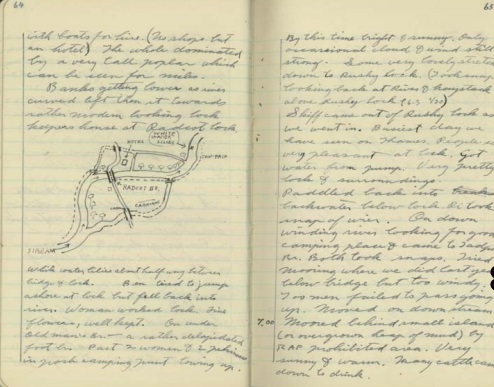 64
with boats for hire. (No shops but
an hotel) The whole dominated
by a very tall poplar which
can be seen for miles.
Banks getting lower as river
curved left then it towards
rather modern looking lock
keepers house at Radcot Lock.
WHITE
WATER
LILIES
HOTEL
RADCOT BR.
STREAM
White water lilies about half way between
bridge & lock. Ben tried to jump
ashore at lock but fell back into
river. Woman worked lock. Fine
flowers, well kept. On under
Old man's Br. — a rather delapidated
foot br. Past 2 women & 2 pekinese
in posh camping punt towing up.
65
By this time bright & sunny. Only
occasional cloud & wind still
strong. Some very lovely stretches
down to Rushy Lock. (Took snap
looking back at River & haystack
above Rushy Lock
Skiff came out of Rushy Lock as
we went in. Busiest day we
have seen on Thames. People
very pleasant at lock. Got
water from pump. Very pretty
lock & surroundings.
Paddled back into
backwater below lock. Di took
snap of weir. On down
winding river looking for good
camping place & came to Tadpole
Br. Both took snaps. Tried
mooring where we did last year
below bridge but too windy.
Two men failed to pass going
up. Moved on down stream
7.00 Moored behind small island
(or overgrown heap of mud) by
RAF prohibited area. Very
sunny & warm. Many cattle came
down to drink.